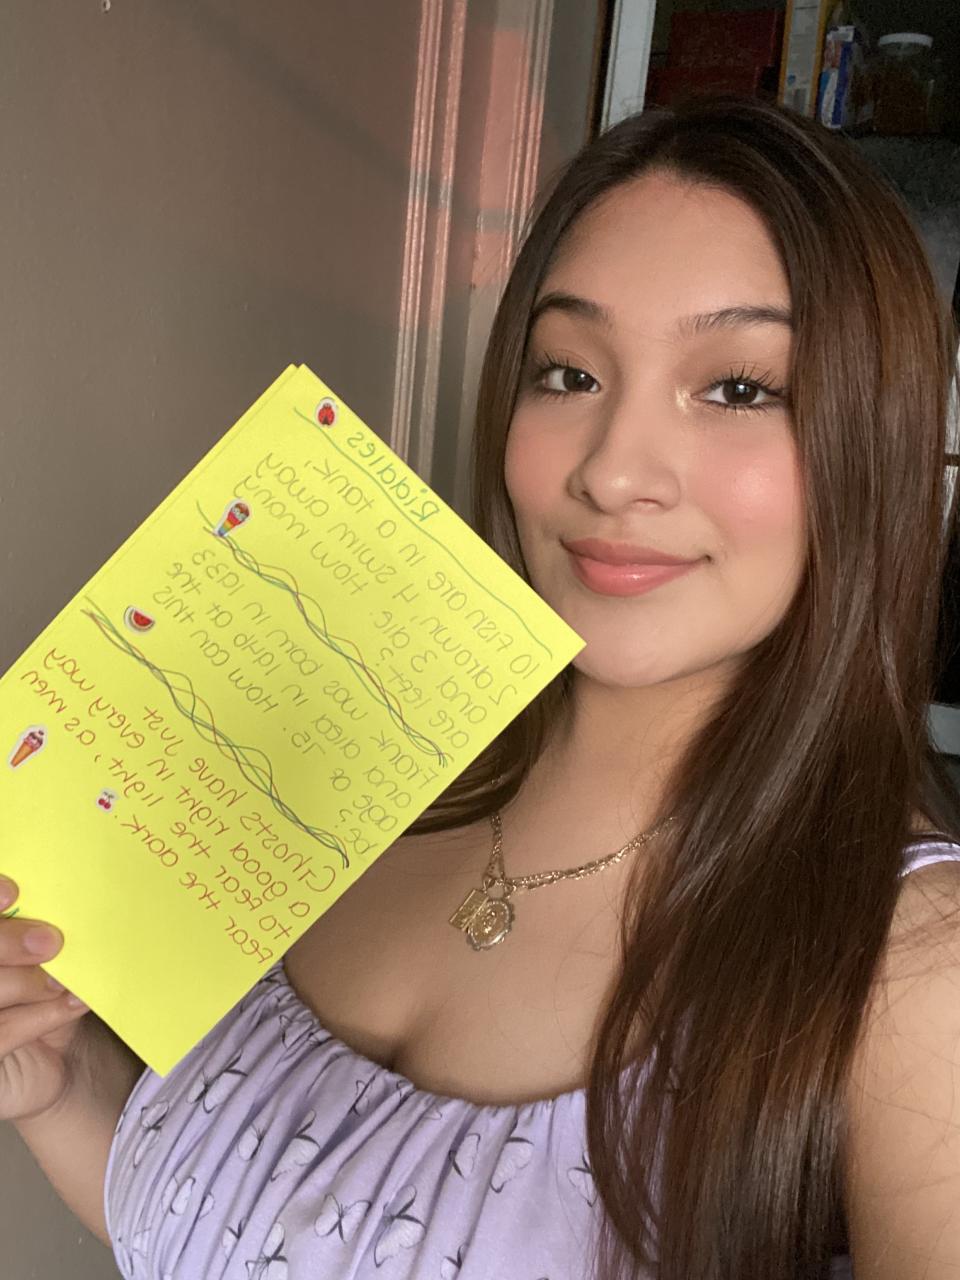 Riddles
10 fish are in a tank,
2 drown, 4 swim away
and 3 die. How many
are left?
Frank was born in 1933
and died in 1940 at the
age of 15. How can this
be?
Ghosts have just
a good right in every way
to fear the light, as men
fear the dark.